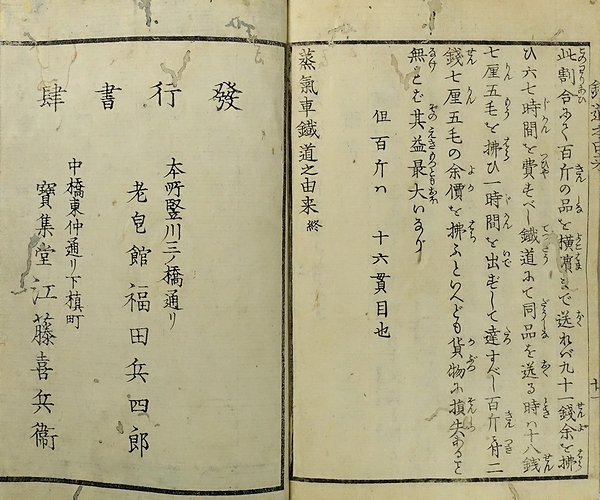 鐵道之由来
此割合にて百斤の品を横濱まで送れバ九十一錢余を拂
ひ六七時間を費すべし鐵道にて同品を送る時ハ十八錢
七厘五毛を拂ひ一時間を出ずして達すべし百斤ニ付二
錢七厘五毛の余價を拂ふといへども貨物に損失あること
無とむ其益最大いなり
但百斤ハ 十六貫目也
蒸氣車鐵道之由来 終
廿一
發行書肆
本所竪川三ノ橋通り
老皀館 福田兵四郎
中橋東仲通り下槙町
寳集堂 江藤喜兵衞